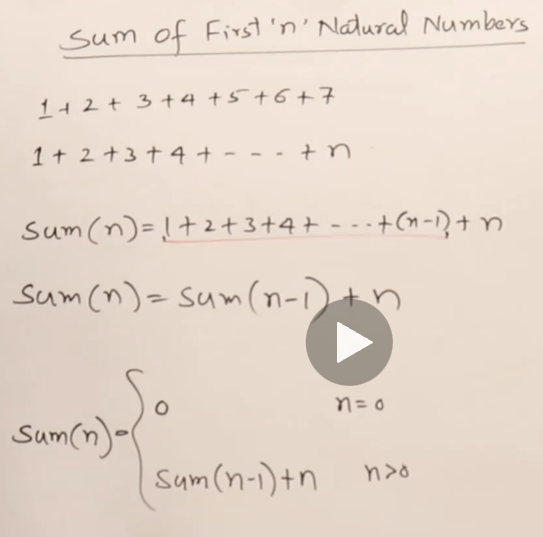 Sum of First 'n' Natural Numbers
1 + 2 + 3 + 4 + 5 + 6 + 7
1 + 2 + 3 + 4 + - - - + n
Sum(n) = 1 + 2 + 3 + 4 + - - - - + (n-1) + n
Sum(n) = Sum(n-1) + n
Sum(n) = { 0 n = 0
Sum(n-1) + n n > 0